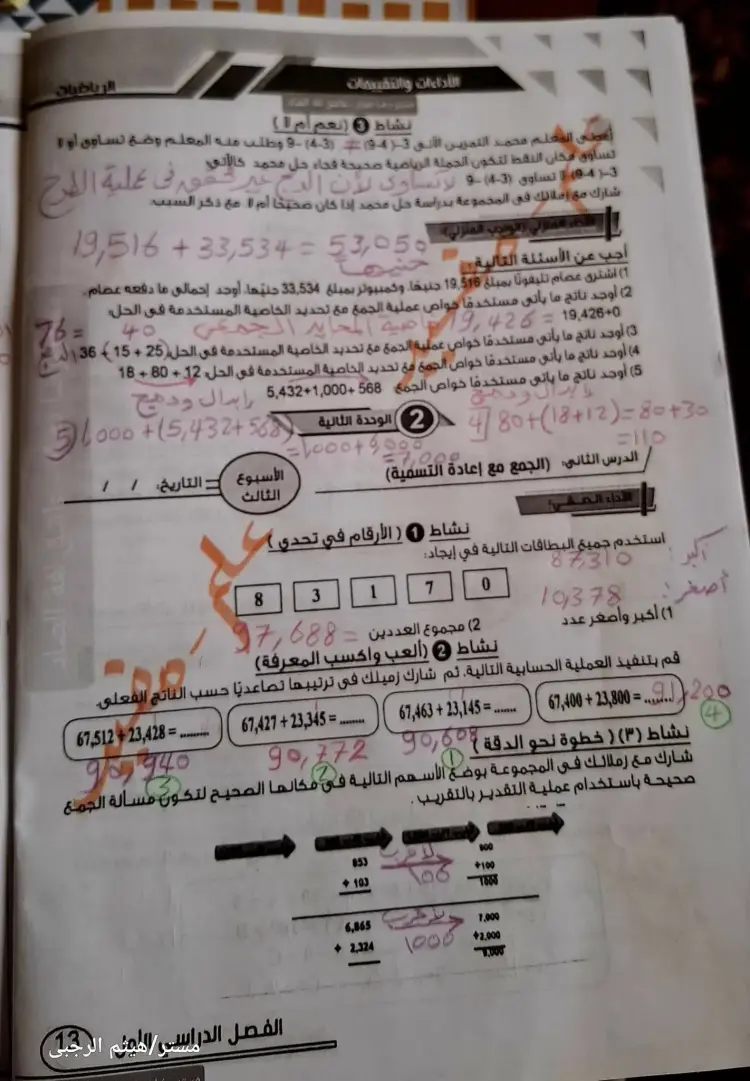 الأداءات والتقييمات
الرياضيات
نشاط 3 (نعم أم لا)
أعطى المعلم محمد التمرين الآتي 3- (4-9) ≠ (3-4) -9 وطلب منه المعلم وضع تساوي أو لا
تساوي مكان النقط لتكون الجملة الرياضية صحيحة فجاء حل محمد كالآتي
3- (4-9) لا تساوي (3-4) -9 لا تساوي لأن الدمج غير محقق في عملية الطرح
شارك مع زملائك في المجموعة بدراسة حل محمد إذا كان صحيحًا أم لا مع ذكر السبب.
الأداء المنزلي (الواجب المنزلي):
19,516 + 33,534 = 53,050
جنيهًا
أجب عن الأسئلة التالية:
1) اشترى عصام تليفونًا بمبلغ 19,516 جنيهًا، وكمبيوتر بمبلغ 33,534 جنيهًا. أوجد إجمالي ما دفعه عصام.
2) أوجد ناتج ما يأتي مستخدمًا خواص عملية الجمع مع تحديد الخاصية المستخدمة في الحل:
19,426+0 = 19,426 خاصية المحايد الجمعي
3) أوجد ناتج ما يأتي مستخدمًا خواص عملية الجمع مع تحديد الخاصية المستخدمة في الحل: 36 + (15 + 25)
40 = 76 الدمج
4) أوجد ناتج ما يأتي مستخدمًا خواص الجمع مع تحديد الخاصية المستخدمة في الحل: 18 + 80 + 12
5) أوجد ناتج ما يأتي مستخدمًا خواص الجمع 5,432+1,000+ 568
إبدال ودمج
إبدال ودمج
4) 80+(18+12)=80+30
=110
5) 1,000 + (5,432+568)
=1,000+6,000
=7,000
2 الوحدة الثانية
الدرس الثاني: (الجمع مع إعادة التسمية)
الأسبوع الثالث
التاريخ: / /
الأداء الصفي:
نشاط 1 (الأرقام في تحدي)
استخدم جميع البطاقات التالية في إيجاد:
أكبر: 87,310
8 3 1 7 0
أصغر: 10,378
1) أكبر وأصغر عدد
2) مجموع العددين = 97,688
نشاط 2 (ألعب واكسب المعرفة)
قم بتنفيذ العملية الحسابية التالية، ثم شارك زميلك في ترتيبها تصاعديًا حسب الناتج الفعلي.
67,512 + 23,428 = ......... 67,427 + 23,345 = ........ 67,463 + 23,145 = ....... 67,400 + 23,800 = ....... 91,200
90,940 90,772 90,608
3 2 1 4
نشاط (٣) ( خطوة نحو الدقة )
شارك مع زملائك في المجموعة بوضع الأسهم التالية في مكانها الصحيح لتكون مسألة الجمع
صحيحة باستخدام عملية التقدير بالتقريب .
853 لأقرب 900
+ 103 100 +100
1000
6,865 لأقرب 7,000
+ 2,324 1000 +2,000
9,000
الفصل الدراسي الأول
13
مستر/هيثم الرجبى